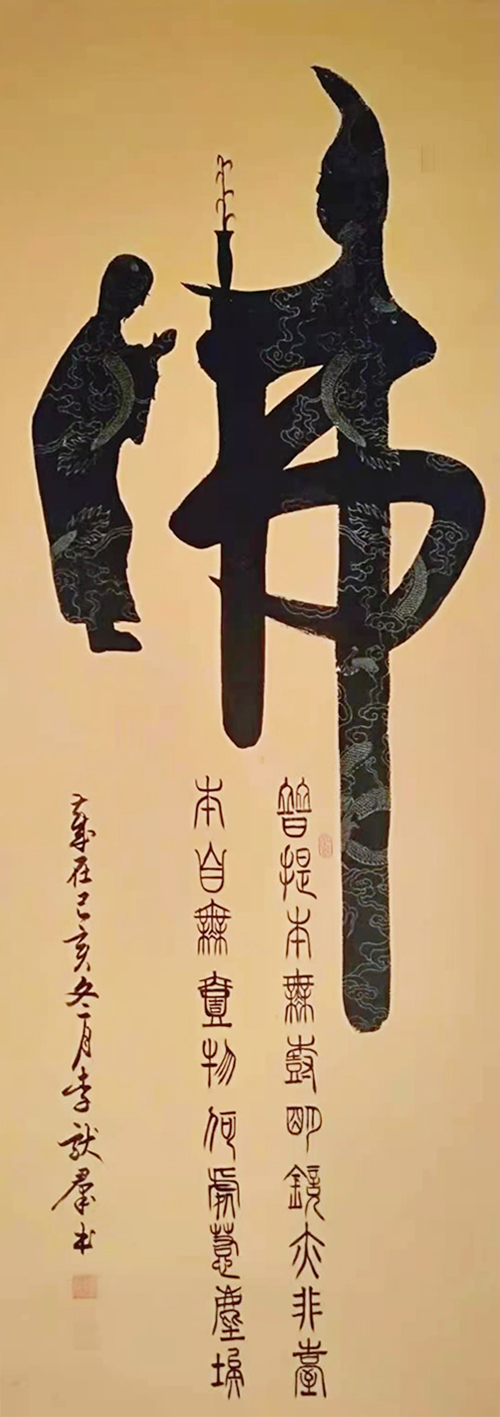 佛
菩提本無樹明鏡亦非臺
本自無壹物何處惹塵埃
歲在己亥冬月李羣书